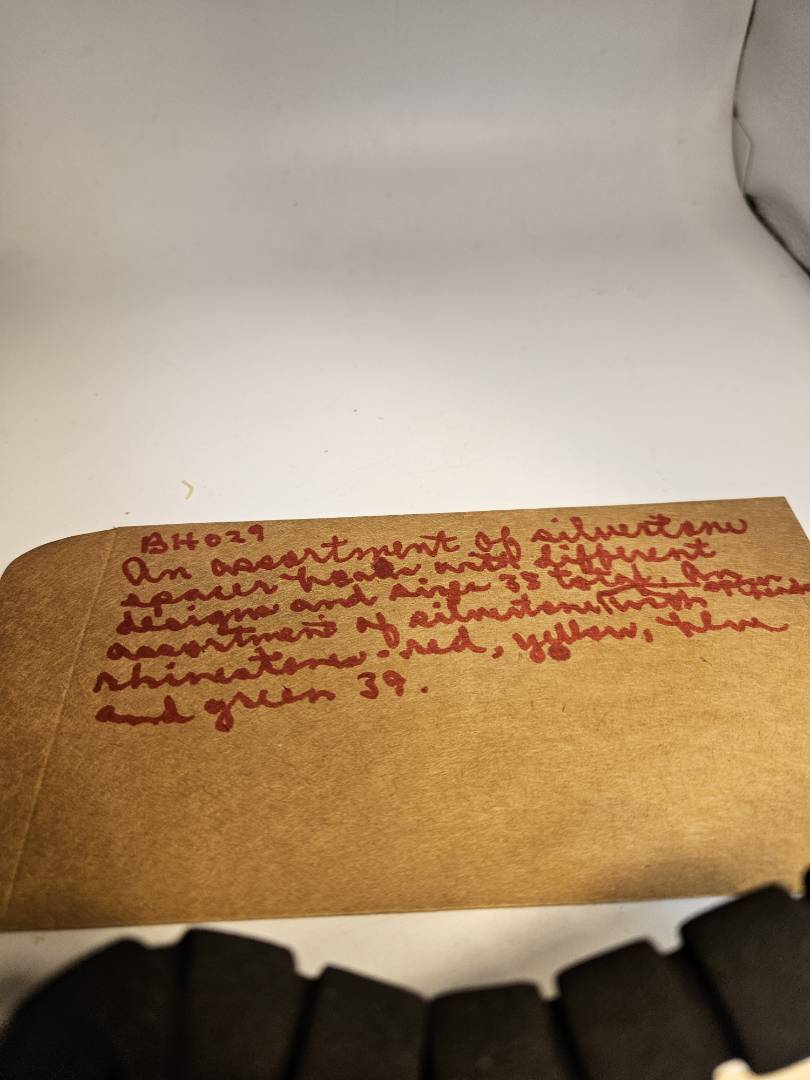 BH029
An assortment of silvertone
spacer beads with different
designs and sizes 38 total. An
assortment of silvertone with
rhinestones. red, yellow, blue
and green 39.